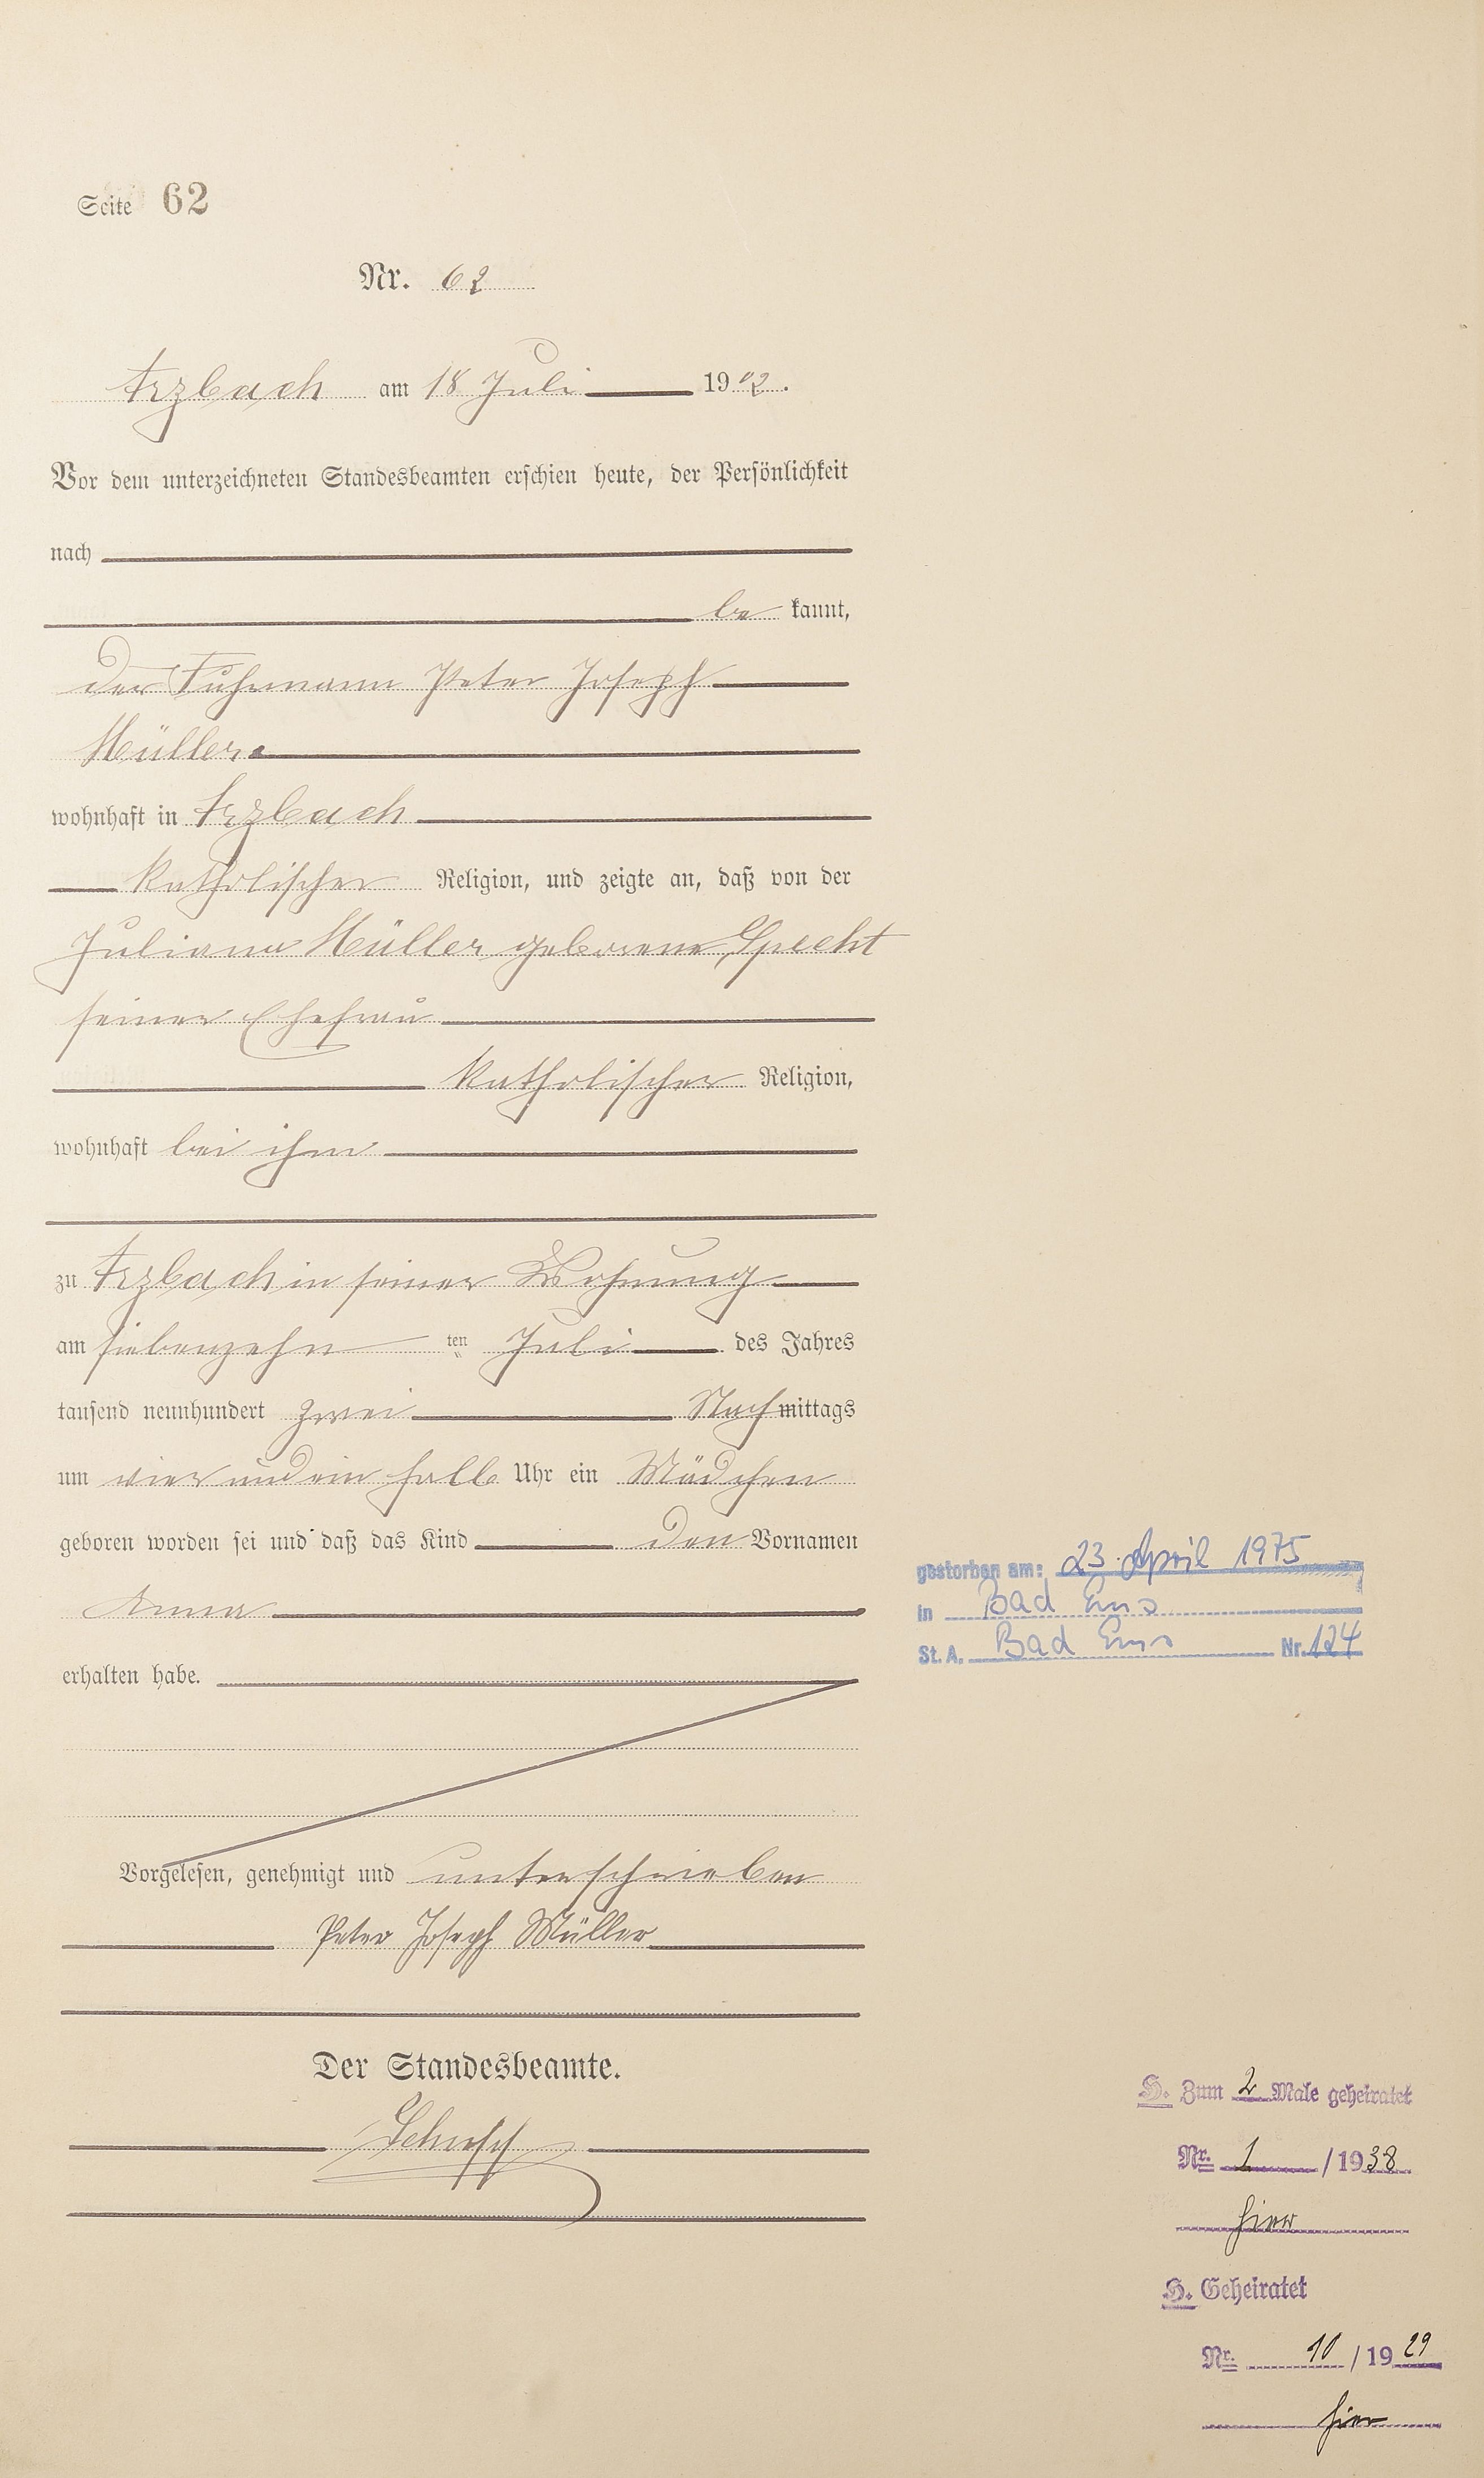 Seite 62
Nr. 62
Arzbach am 18 Juli 1902.
Vor dem unterzeichneten Standesbeamten erschien heute, der Persönlichkeit
nach
be kannt,
der Fuhrmann Peter Joseph
Müller
wohnhaft in Arzbach
katholischer Religion, und zeigte an, daß von der
Juliana Müller geborene Specht
seiner Ehefrau
katholischer Religion,
wohnhaft bei ihm
zu Arzbach in seiner Wohnung
am siebenzehn ten Juli des Jahres
tausend neunhundert zwei Nachmittags
um vier und ein halb Uhr ein Mädchen
geboren worden sei und daß das Kind den Vornamen
Anna
erhalten habe.
Vorgelesen, genehmigt und unterschrieben
Peter Joseph Müller
Der Standesbeamte.
gestorben am: 23. April 1975
in Bad Ems
St. A. Bad Ems Nr. 124
H. Zum 2 Male geheiratet
Nr. 1 / 1938
hier
H. Geheiratet
Nr. 10 / 1929
hier